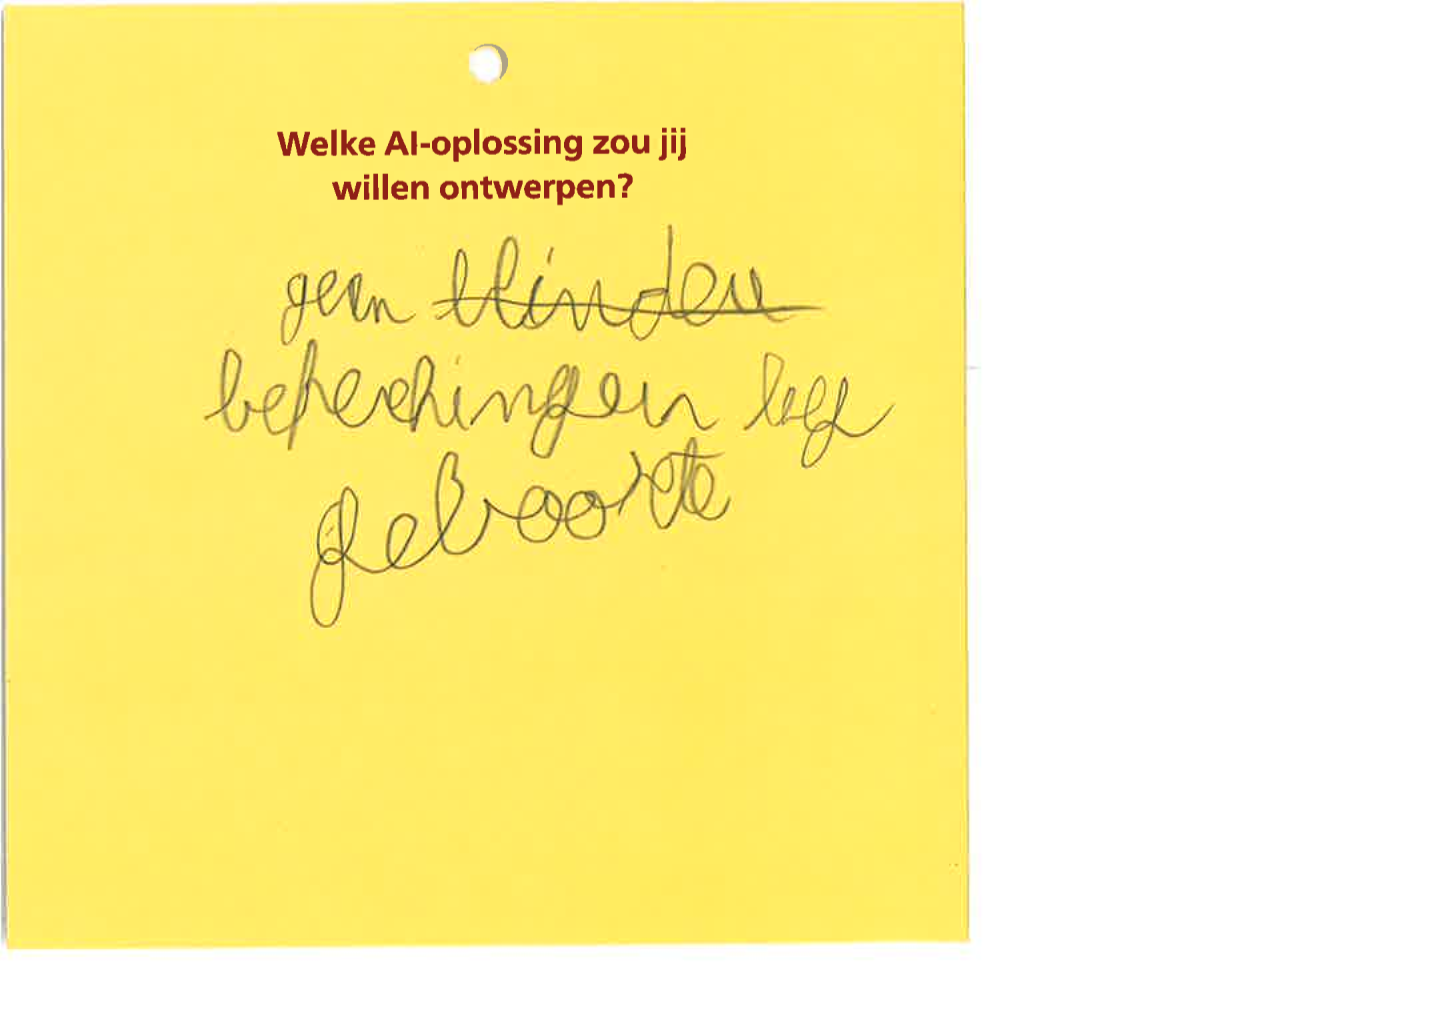 Welke AI-oplossing zou jij
willen ontwerpen?
geen blinden
beperkingen
geboorte